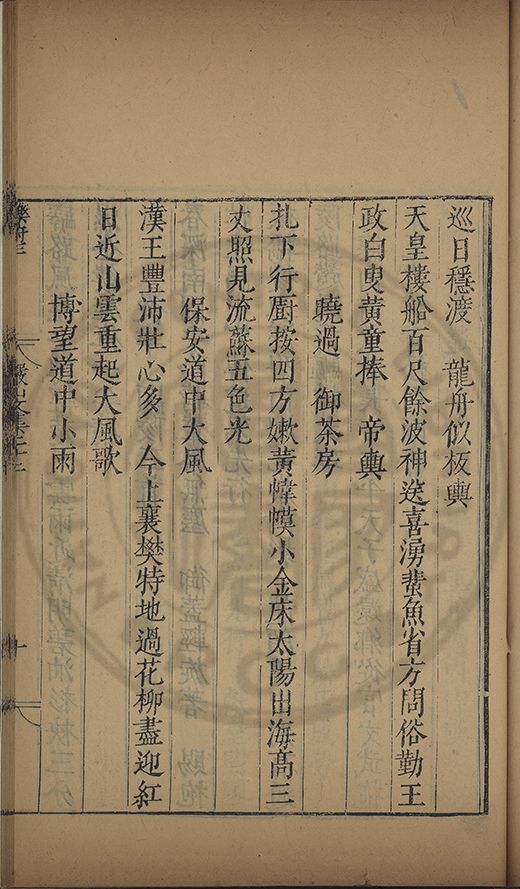 巡日穩渡　龍舟似板輿
天皇樓船百尺餘波神送喜湧蜚魚省方問俗勤王
政白叟黄童捧　帝輿
曉過　御茶房
扎下行厨按四方嫩黄幃幙小金床太陽出海高三
丈照見流蘇五色光
保安道中大風
漢王豐沛壯心多　今上襄樊特地過花柳盡迎紅
日近山雲重起大風歌
博望道中小雨